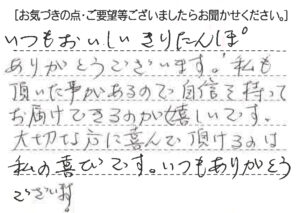 [お気づきの点・ご要望等ございましたらお聞かせください。]
いつもおいしいきりたんぽ
ありがとうございます。私も
頂いた事があるので自信を持って
お届けできるのが嬉しいです。
大切な方に喜んで頂けるのは
私の喜びです。いつもありがとう
ございます!